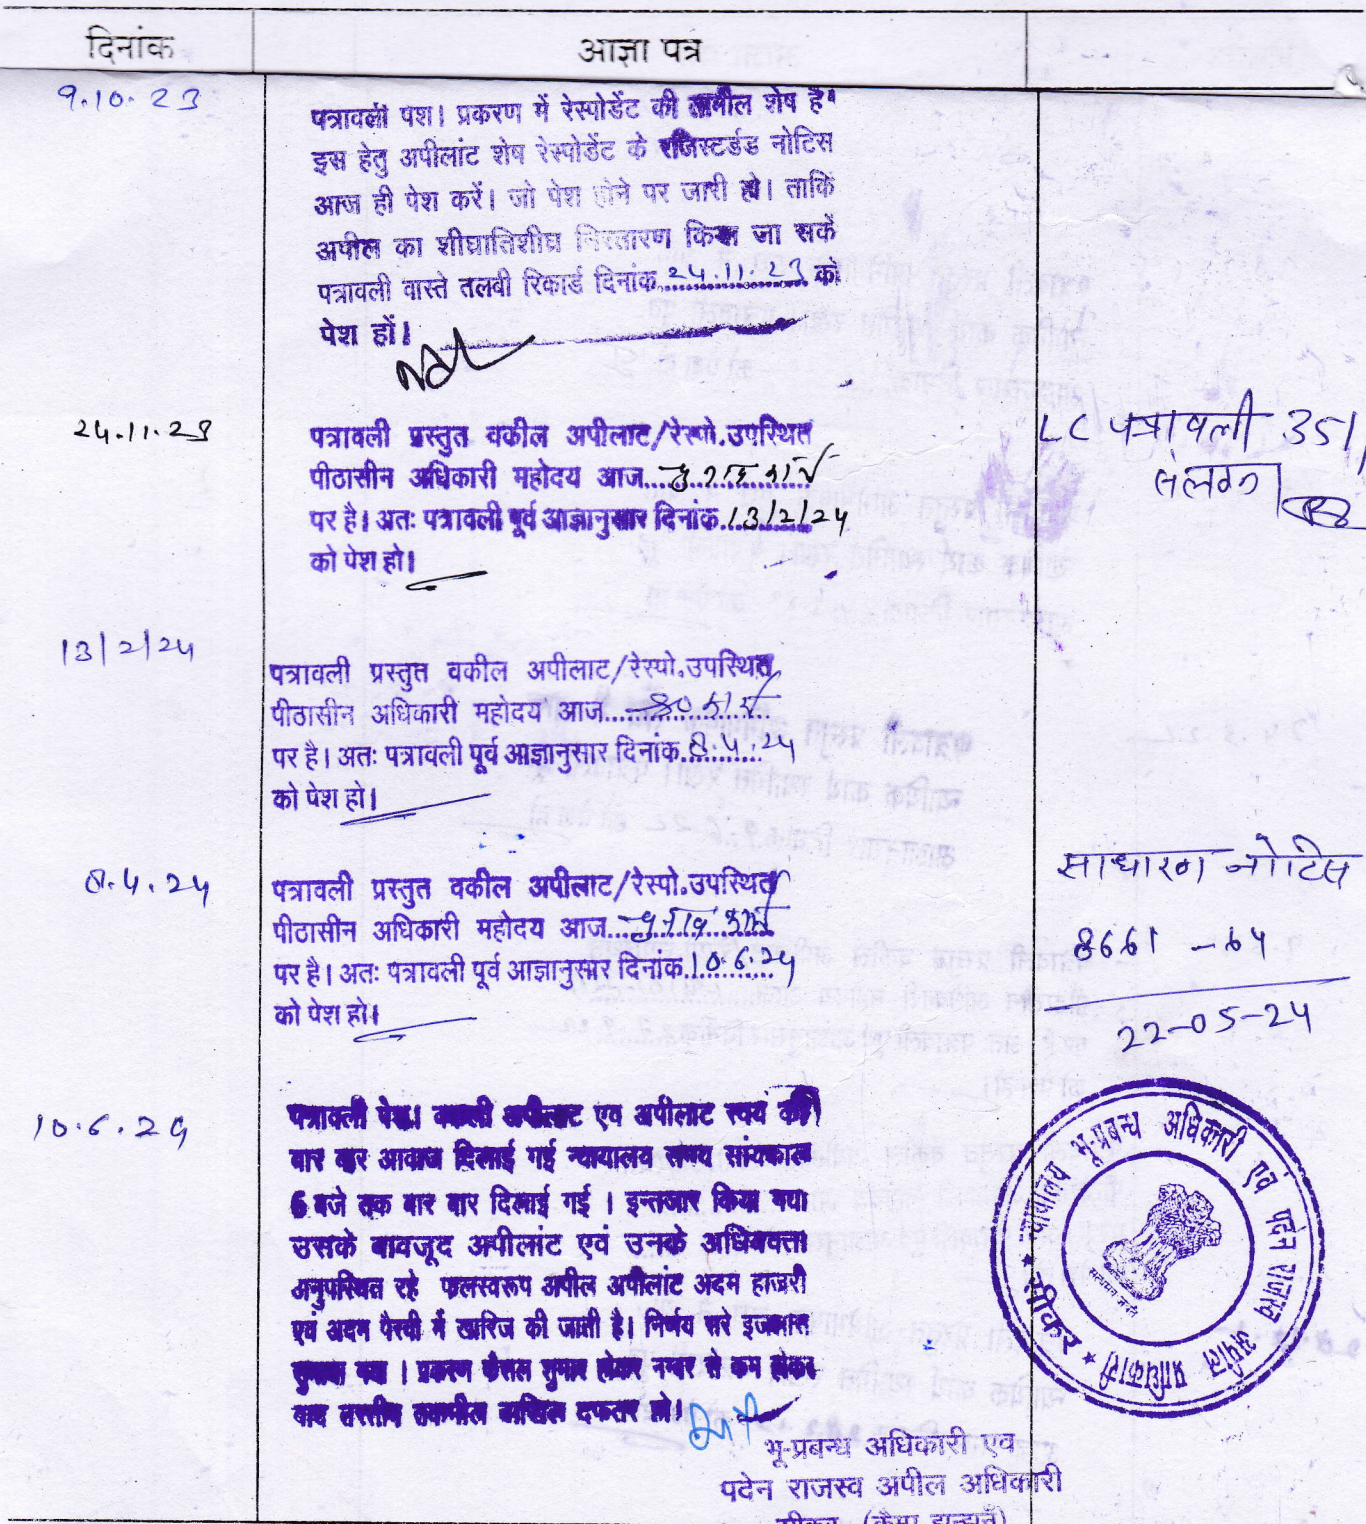 दिनांक
आज्ञा पत्र
9.10.23
पत्रावली पेश। प्रकरण में रेस्पोडेंट की तामील शेष है।
इस हेतु अपीलांट शेष रेस्पोडेंट के रजिस्टर्डड नोटिस
आज ही पेश करें। जो पेश होने पर जारी हो। ताकि
अपील का शीघ्रातिशीघ्र निस्तारण किया जा सकें
पत्रावली वास्ते तलबी रिकार्ड दिनांक 24.11.23 को
पेश हों।
24.11.23
पत्रावली प्रस्तुत वकील अपीलाट/रेस्पो.उपस्थित
पीठासीन अधिकारी महोदय आज
पर है। अतः पत्रावली पूर्व आज्ञानुसार दिनांक 13/2/24
को पेश हो।
LC पत्रावली 351
संलग्न
13/2/24
पत्रावली प्रस्तुत वकील अपीलाट/रेस्पो.उपस्थित
पीठासीन अधिकारी महोदय आज
पर है। अतः पत्रावली पूर्व आज्ञानुसार दिनांक 8.4.24
को पेश हो।
8.4.24
पत्रावली प्रस्तुत वकील अपीलाट/रेस्पो.उपस्थित
पीठासीन अधिकारी महोदय आज
पर है। अतः पत्रावली पूर्व आज्ञानुसार दिनांक 10.6.24
को पेश हो।
साधारण नोटिस
8661 - 64
22-05-24
10.6.24
पत्रावली पेश। वकली अपीलाट एव अपीलाट स्वयं को
बार बार आवाज दिलाई गई न्यायालय समय सांयकाल
6 बजे तक बार बार दिलाई गई । इन्तजार किया गया
उसके बावजूद अपीलांट एवं उनके अधिवक्ता
अनुपस्थित रहे फलस्वरूप अपील अपीलांट अदम हाजरी
एवं अदम पैरवी में खारिज की जाती है। निर्णय सरे इजलास
सुनाया गया । प्रकरण फैसल शुमार होकर नम्बर से कम होकर
बाद तरतीब तकमील दाखिल दफतर हो।
न्यायालय भू-प्रबन्ध अधिकारी एवं पदेन राजस्व अपील प्राधिकारी
* सीकर *
भू-प्रबन्ध अधिकारी एव
पदेन राजस्व अपील अधिकारी
सीकर